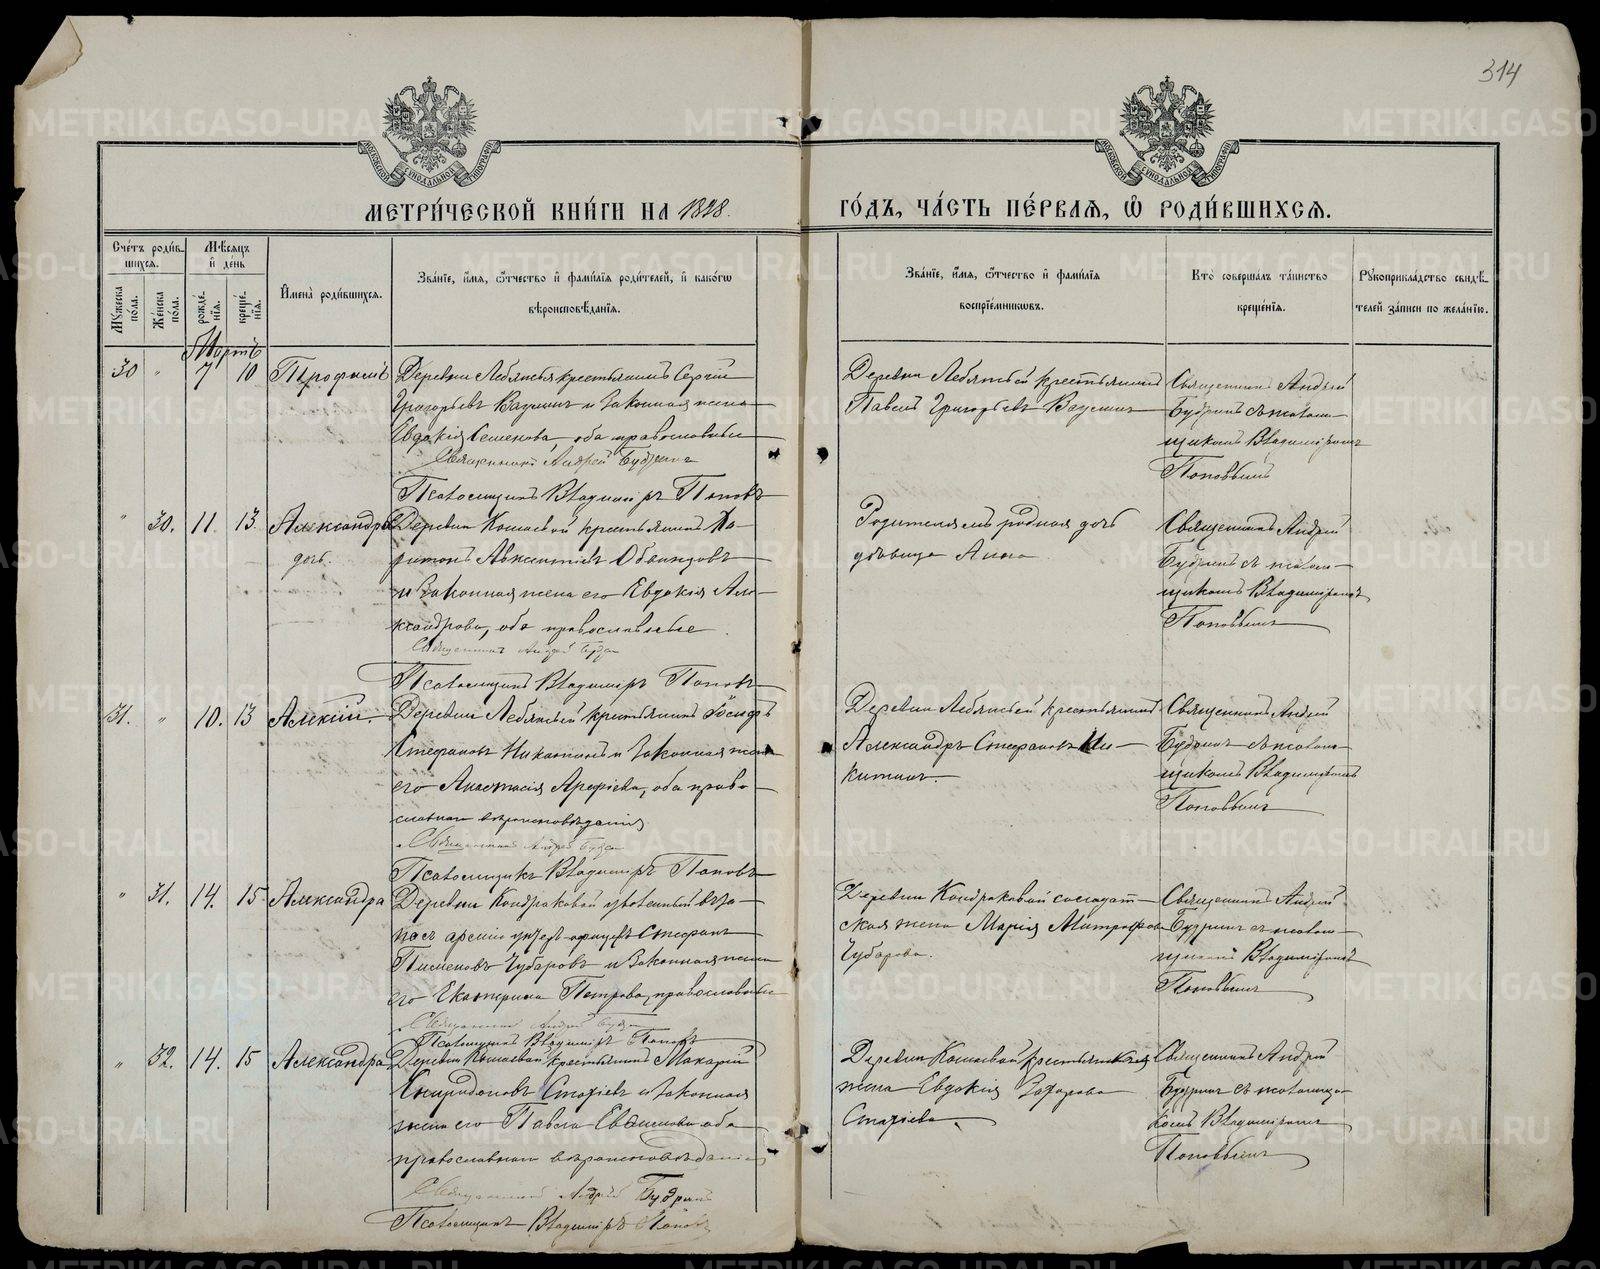 314
МЕТРИ́ЧЕСКОЙ КНИ́ГИ НА 1898.
ГО́ДЪ, ЧА́СТЬ ПЕ́РВАЯ, Ѿ РОДИ́ВШИХСЯ.
Сче́тъ роди́в-
шихся.
Му́жеска по́ла.
Же́нска по́ла.
Мѣ́сяцъ и де́нь
рожде́нія.
креще́нія.
И́мена роди́вшихся.
Зва́ніе, и́мя, ѻ́тчество и фами́лія роди́телей, и како́гѡ
вѣроисповѣ́данія.
Зва́ніе, и́мя, ѻ́тчество и фами́лія
воспріе́мниковъ.
Кто̀ соверша́лъ та́инство
креще́нія.
Рукоприкла́дство свидѣ́-
телей за́писи по жела́нію.
Мартъ
30 " 7 10 Трофимъ
Деревни Лебяжьей крестьянинъ Сергій
Григорьевъ и законная жена
Евдокія Семенова, оба православные
Священникъ Андрей Будринъ
Псаломщикъ Владиміръ Поповъ
Деревни Лебяжьей крестьянинъ
Павелъ Григорьевъ
Священникъ Андрей
Будринъ съ псалом-
щикомъ Владиміромъ
Поповымъ
" 30. 11. 13. Александра
дочь.
Деревни Кошаевой крестьянинъ Ха-
ритонъ Авксентіевъ
и законная жена его Евдокія Але-
ксандрова, оба православные
Священникъ Андрей Будринъ
Псаломщикъ Владиміръ Поповъ
Родителямъ родная дочь
дѣвица Анна
Священникъ Андрей
Будринъ съ псалом-
щикомъ Владиміромъ
Поповымъ
31. " 10. 13 Алексій
Деревни Лебяжьей крестьянинъ Іосифъ
Стефановъ Никитинъ и законная жена
его Анастасія Арефіева, оба право-
славнаго вѣроисповѣданія
Священникъ Андрей Будринъ
Псаломщикъ Владиміръ Поповъ
Деревни Лебяжьей крестьянинъ
Александръ Стефановъ Ни-
китинъ.
Священникъ Андрей
Будринъ съ псалом-
щикомъ Владиміромъ
Поповымъ
" 31. 14. 15 Александра
Деревни Кондраковой уволенный въ за-
пасъ арміи унтеръ-офицеръ Стефанъ
Пименовъ Чубаровъ и законная жена
его Екатерина Петрова, православные
Священникъ Андрей Будринъ
Псаломщикъ Владиміръ Поповъ
Деревни Кондраковой солдат-
ская жена Марія Митрофанова
Чубарова.
Священникъ Андрей
Будринъ съ псалом-
щикомъ Владиміромъ
Поповымъ
" 32. 14. 15 Александра
Деревни Кошаевой крестьянинъ Макарій
Спиридоновъ и законная
жена его Павла оба
православнаго вѣроисповѣданія
Священникъ Андрей Будринъ
Псаломщикъ Владиміръ Поповъ
Деревни Кошаевой крестьянская
жена Евдокія Захарова
Священникъ Андрей
Будринъ съ псаломщи-
комъ Владиміромъ
Поповымъ
METRIKI.GASO-URAL.RU